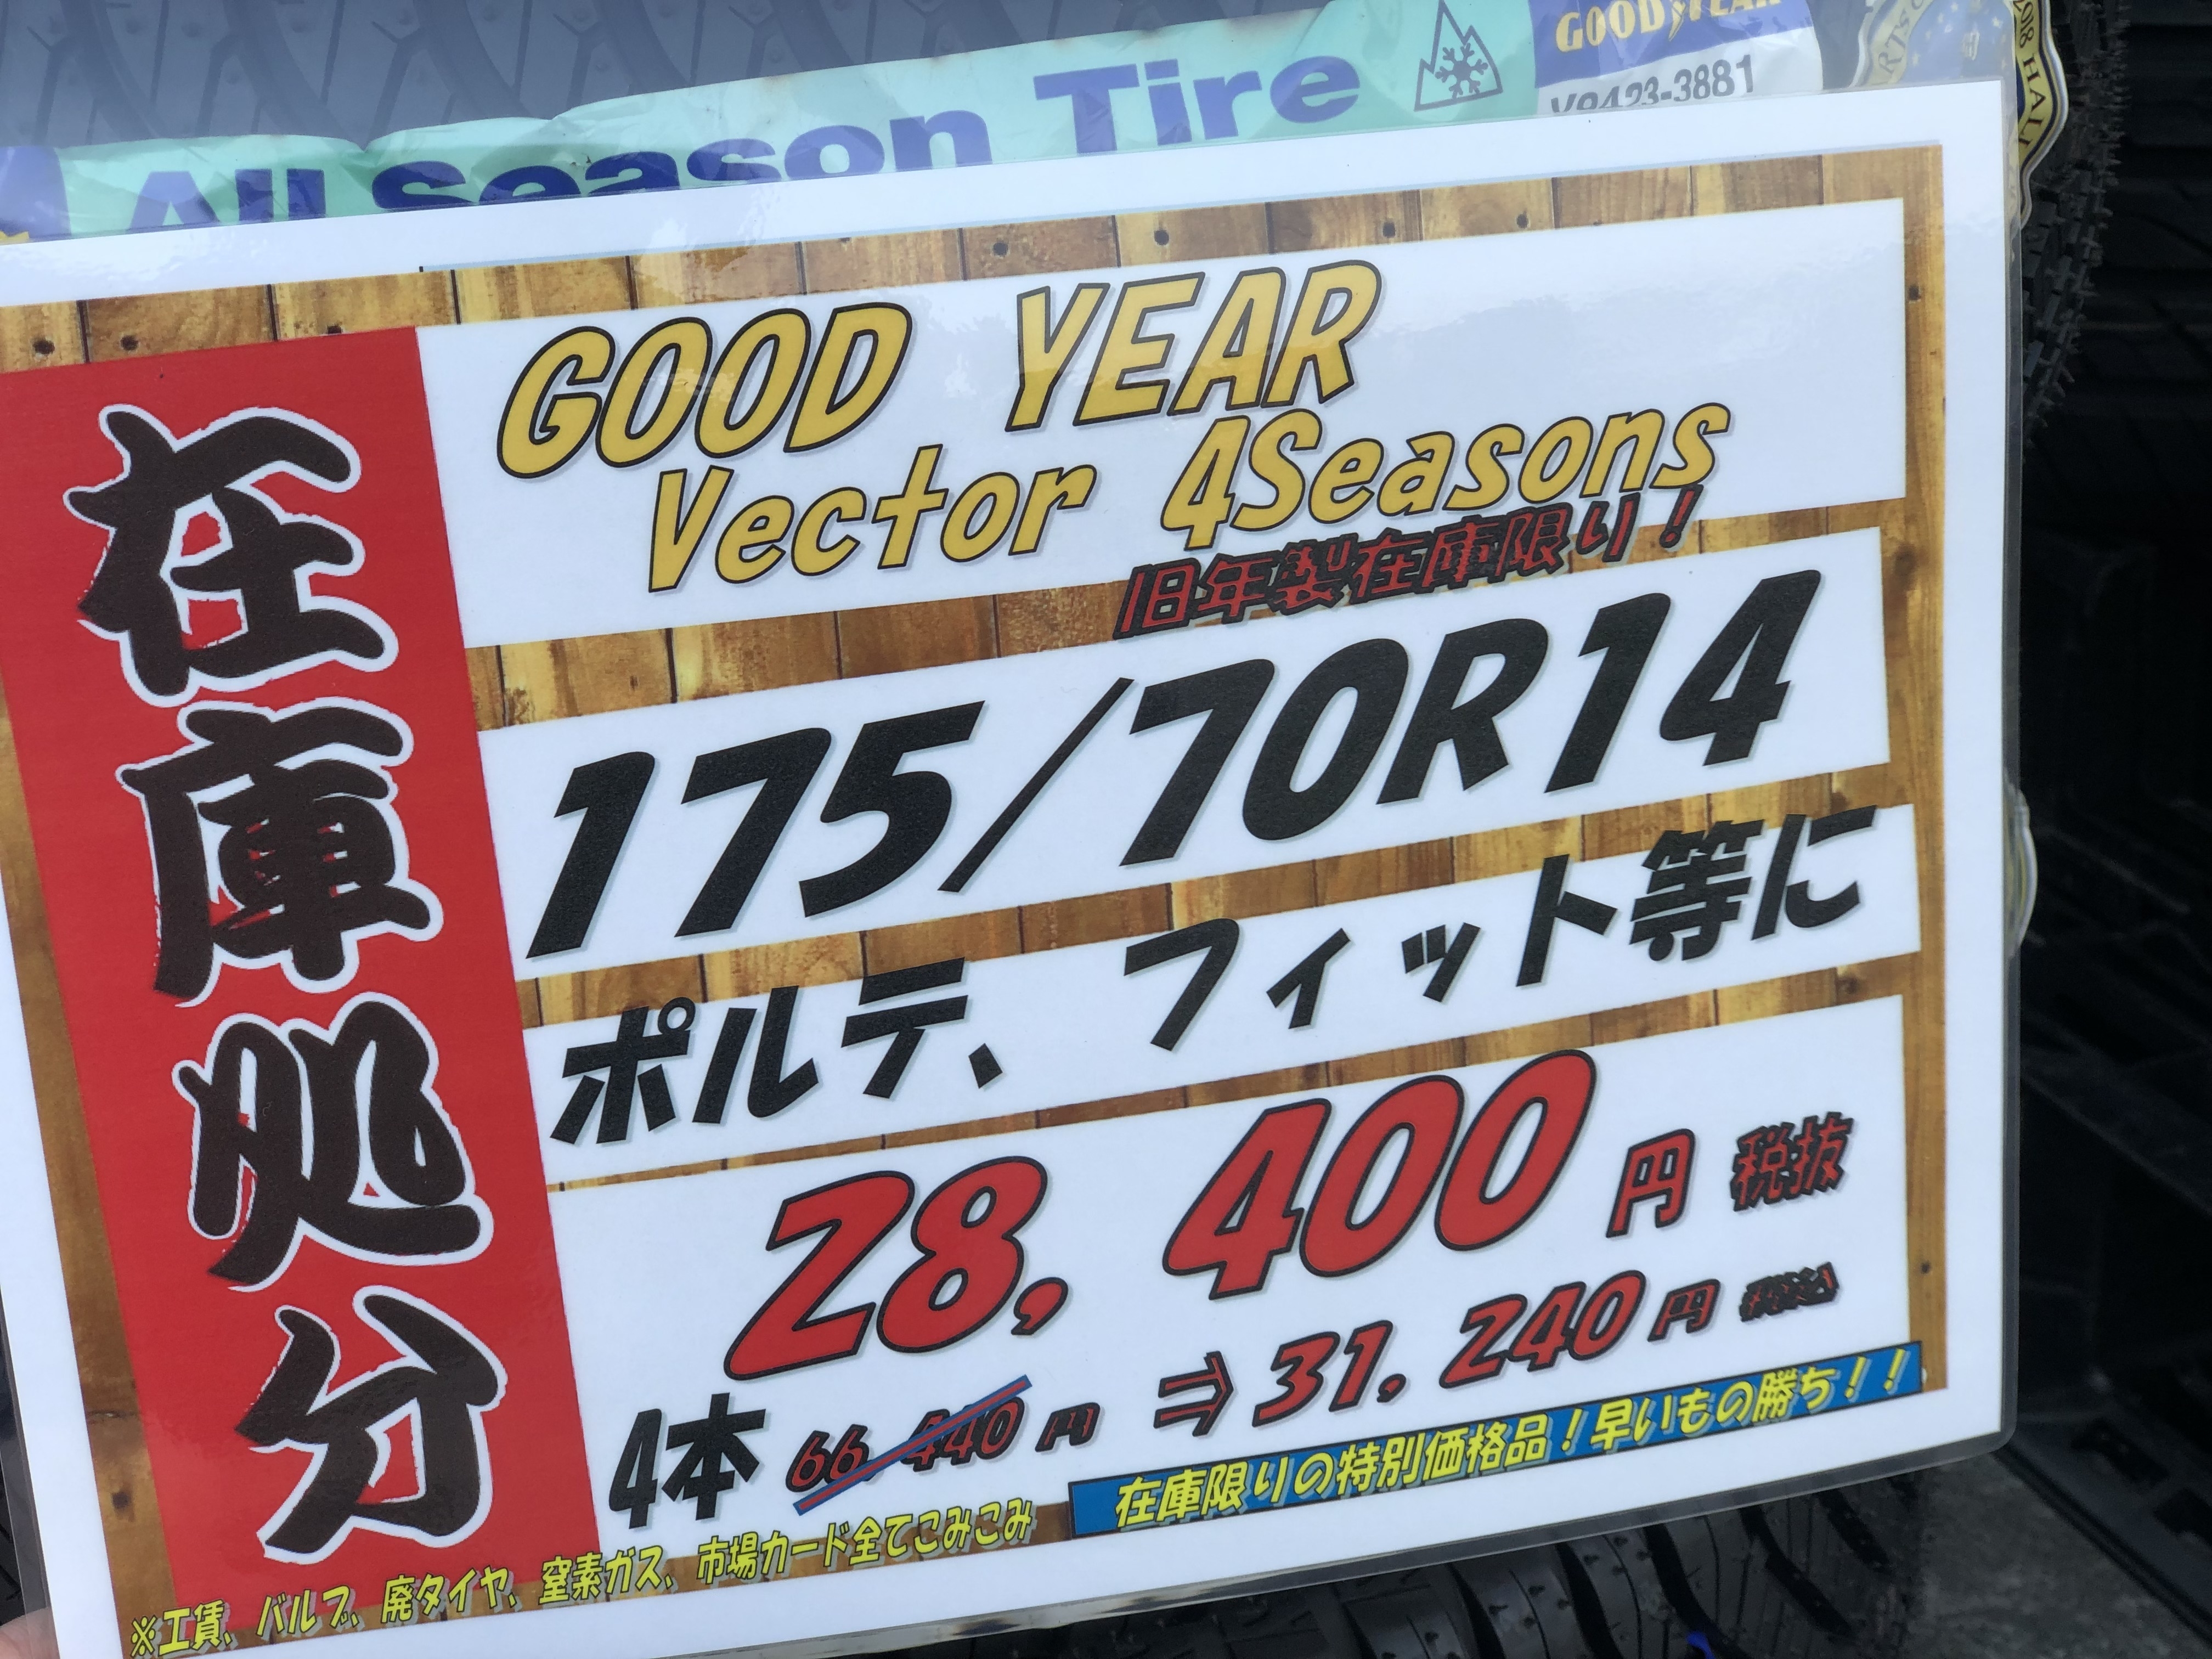 All Season Tire
GOODYEAR
V9423-3881
GOOD YEAR
Vector 4Seasons
旧年製在庫限り！
在庫処分
175/70R14
ポルテ、フィット等に
28,400円 税抜
4本 66,440円 ⇒ 31,240円 税込
在庫限りの特別価格品！早いもの勝ち！！
※工賃、バルブ、廃タイヤ、窒素ガス、市場カード全てこみこみ